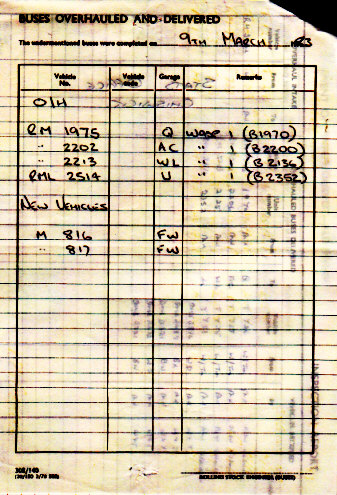 BUSES OVERHAULED AND DELIVERED
The undermentioned buses were completed on 9TH MARCH 1983
Vehicle No. Vehicle code Garage Remarks
O/H
RM 1975 Q WDGE 1 (B1970)
" 2202 AC " 1 (B2200)
" 2213 WL " 1 (B2136)
RML 2514 U " 1 (B2352)
NEW VEHICLES
M 816 FW
" 817 FW
ROLLING STOCK ENGINEER (BUSES)